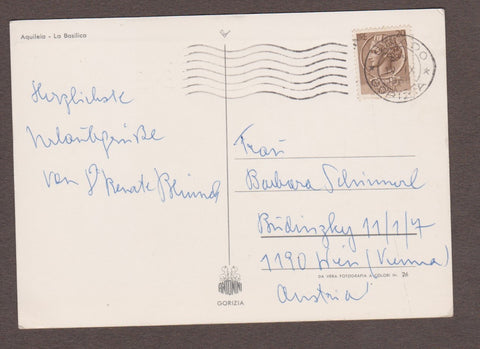 Aquileia - La Basilica
Herzlichste
Urlaubsgrüße
von Renate
20
GRADO
GORIZIA
Frau
Barbara
11/1/7
1190 Wien (Vienna)
Austria
DA VERA FOTOGRAFIA A COLORI Nr. 26
GORIZIA